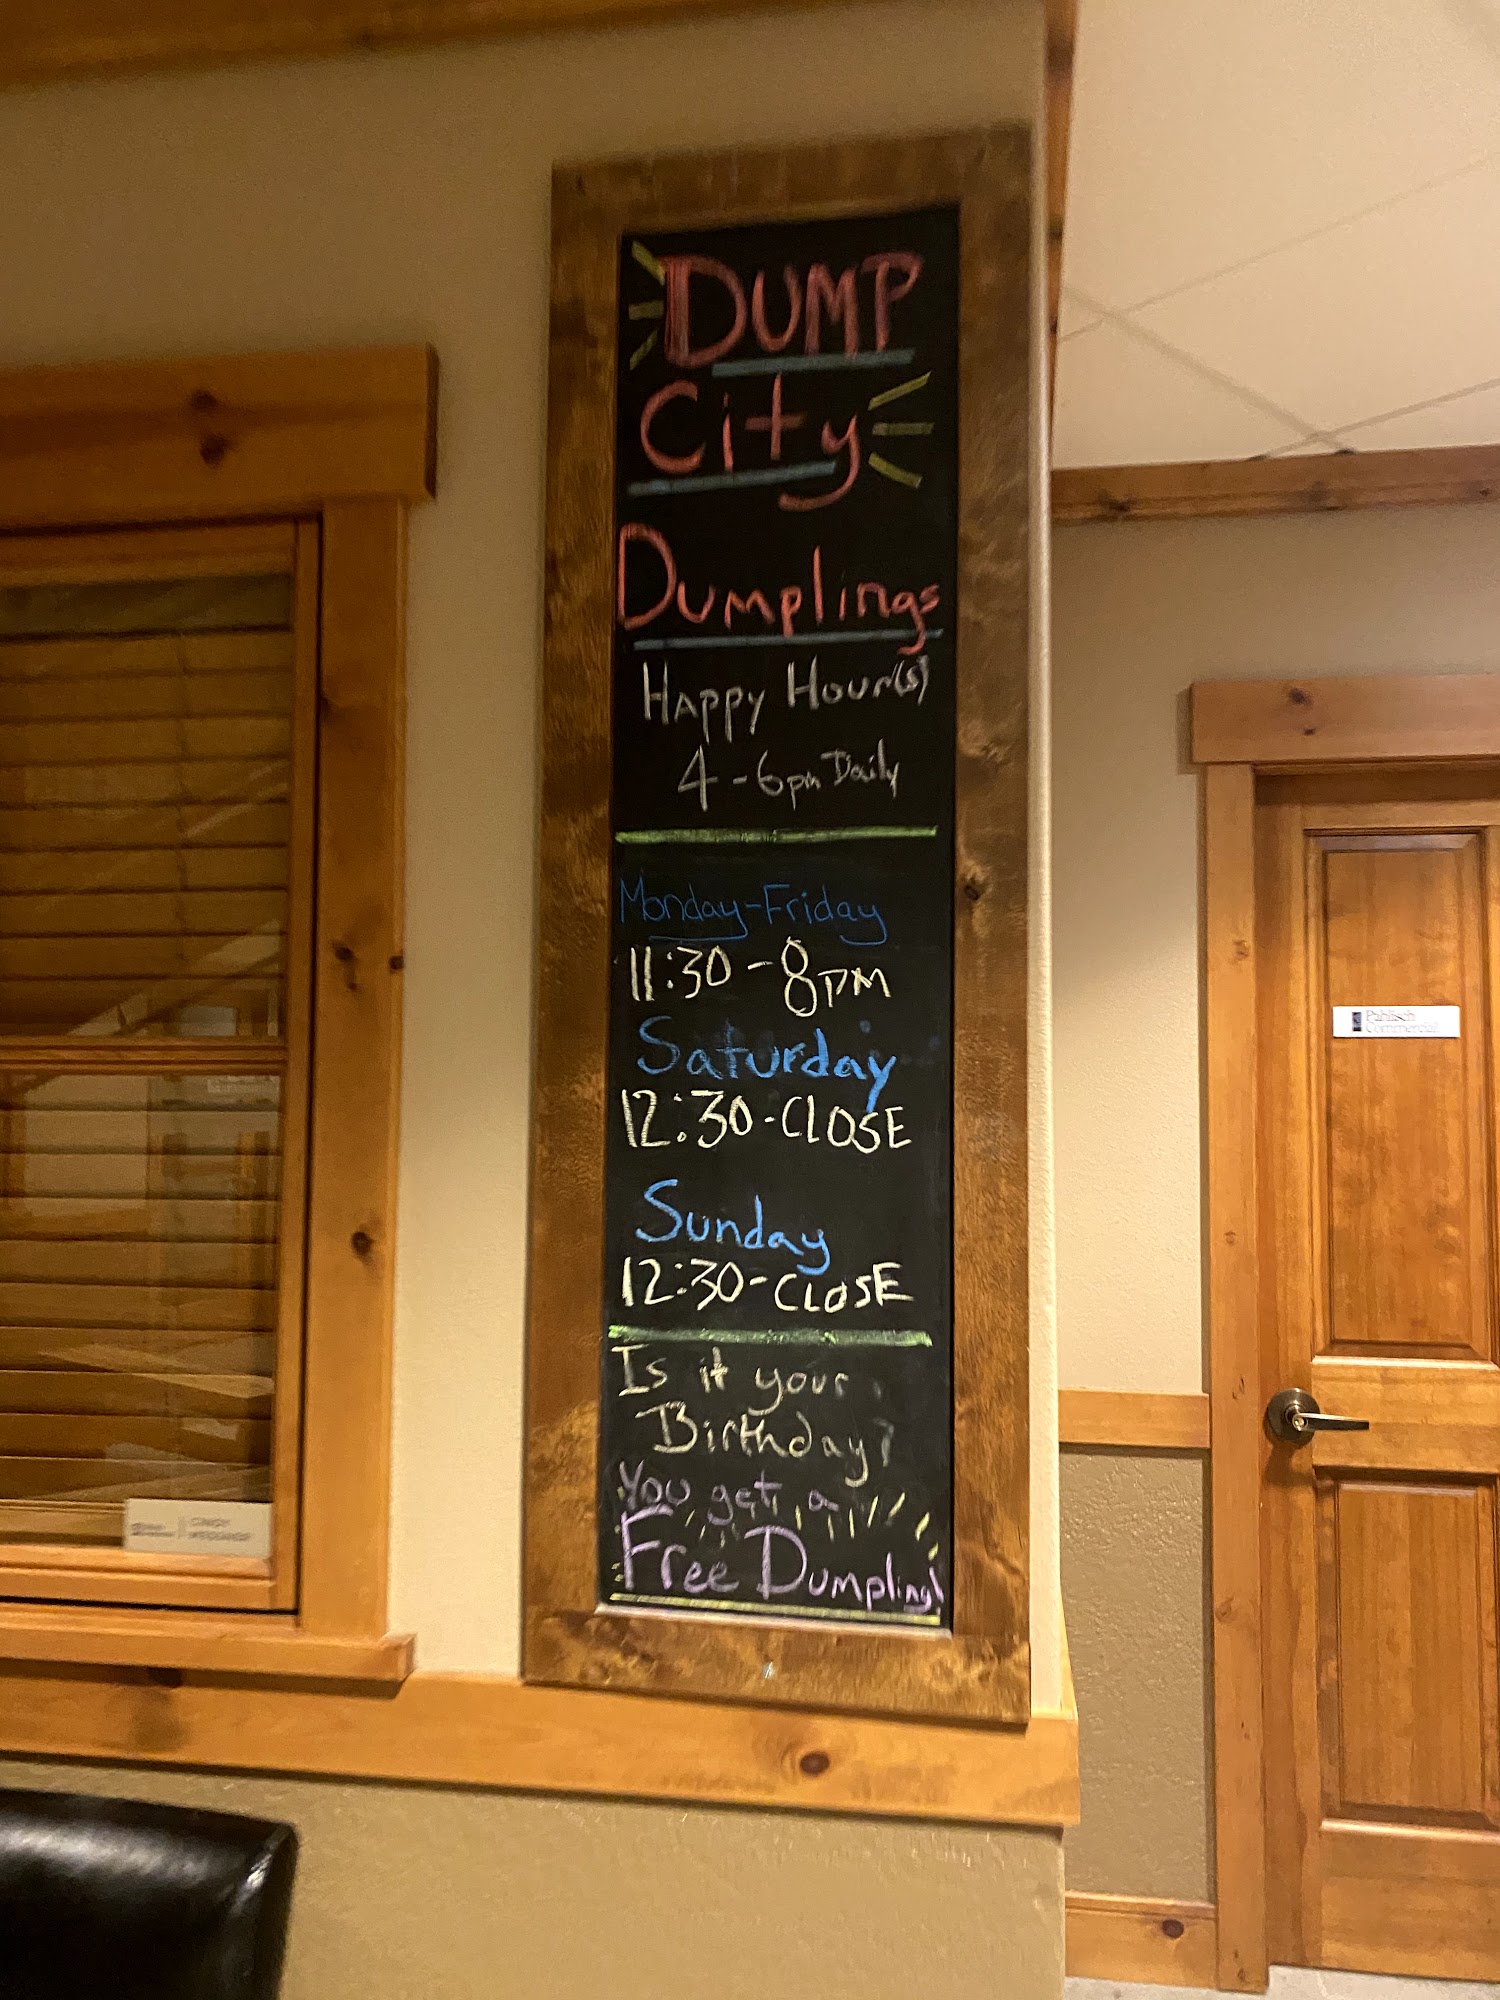 DUMP
City
Dumplings
Happy Hour(s)
4-6pm Daily
Monday-Friday
11:30-8PM
Saturday
12:30-CLOSE
Sunday
12:30-CLOSE
Is it your
Birthday?
You get a
Free Dumpling!
Pahlisch
Commercial